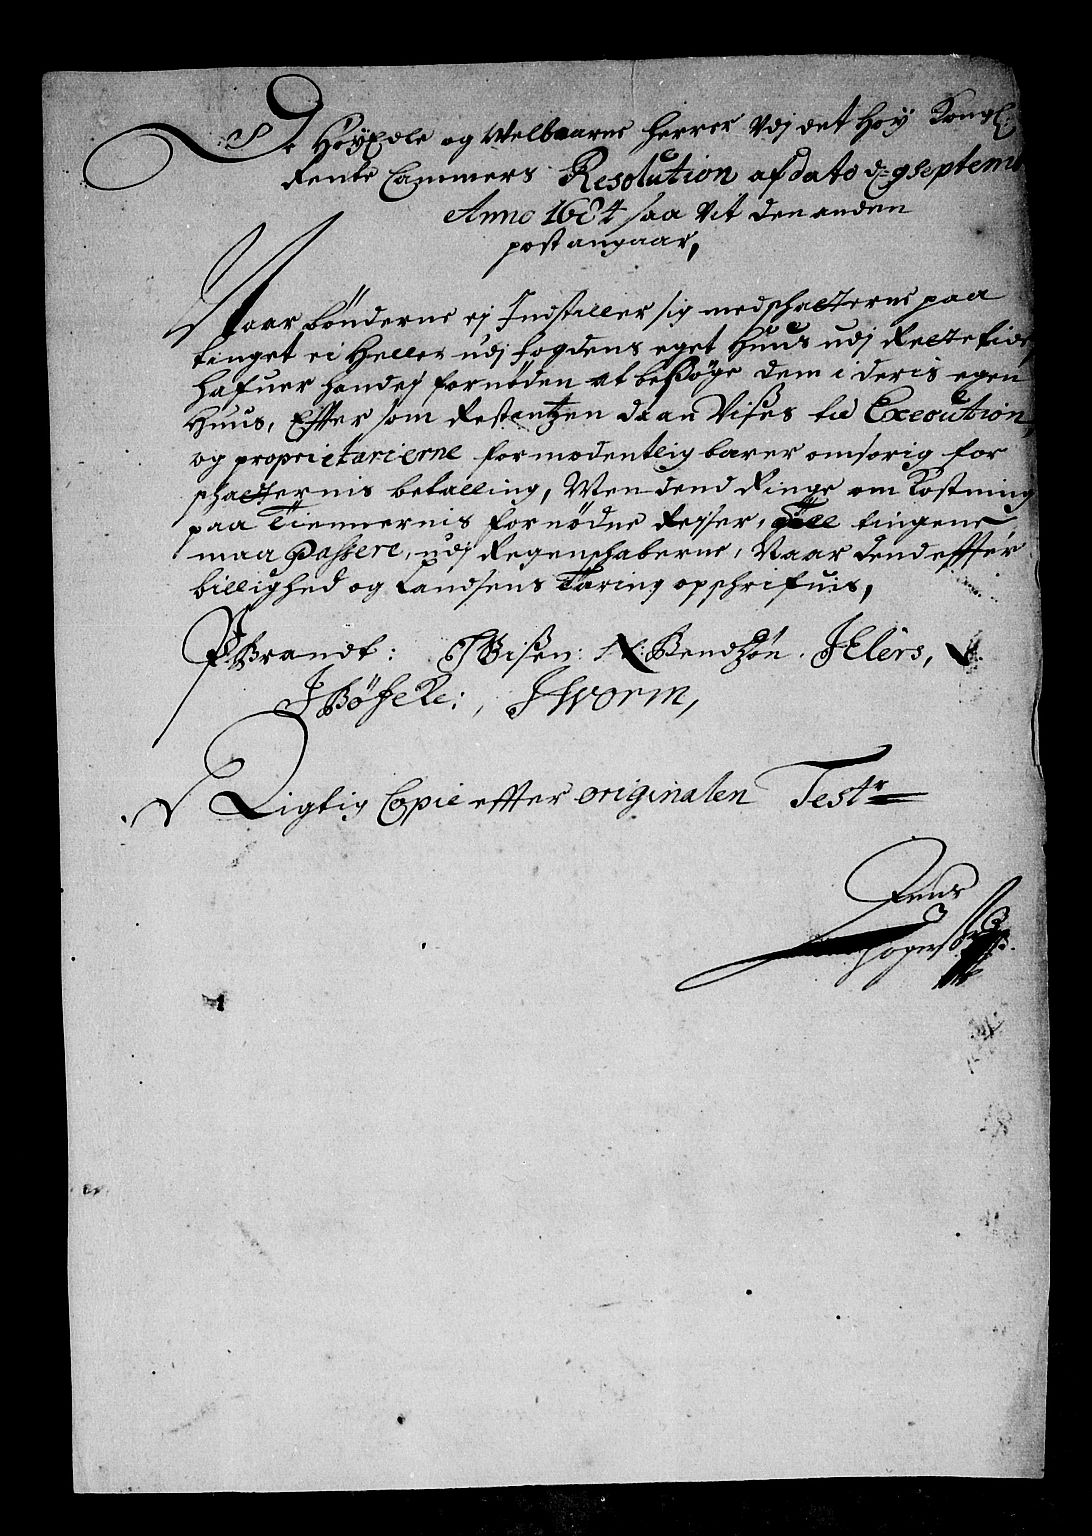 De HøyEdle og Welbaarne Herrer Vdj det Høy Kongl:
Rente Cammers Resolution af dato d: 9 Septemb
Anno 1684 saa vit den anden
post angaar,
Naar bønderne ej Indstiller sig med schatterne paa
tinget ei Heller udj fogdens eget Huus udj Rette tider
hafuer hand ej fornøden at besøge dem i deris egen
Huus, Effter som Restantzen da an Vises til Execution,
og proprietarierne formodentlig bærer omsorig for
schatternis betalling, Men dend Ringe om Kostning
paa Tiennernis fornødne Reiser, Till tingene
maa Passere, udj Regenschaberne, Naar dend effter
billighed og Landsens Taring opschrifuis,
PBrandt: Bisen: N: Bendzøn. JElers,
JBøfeke: , JWorm,
Rigtig Copie effter originalen Testr
Jens